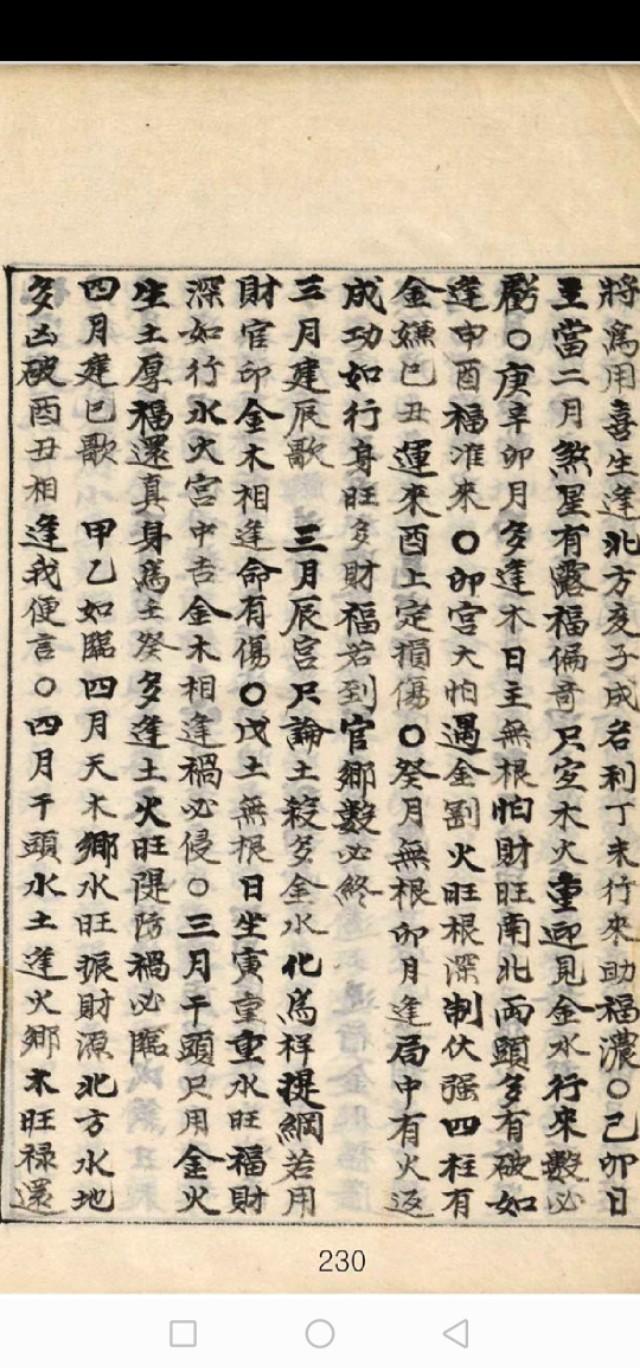 將爲用喜生逢北方亥子成名利丁未行來助福濃○己卯日
主當二月煞星有露福偏奇只宜木火重迎見金水行來數必
虧○庚辛卯月多逢木日主無根怕財旺南北兩頭多有破如
逢申酉福淮來○卯宮大怕遇金割火旺根深制伏强四柱有
金嫌巳丑運來酉上定損傷○癸月無根卯月逢局中有火返
成功如行身旺多財福若到官鄉數必終
三月建辰歌 三月辰宮只論土殺多金水化爲祥提綱若用
財官印金木相逢命有傷○戊土無根日坐寅重重水旺福財
深如行水火宮中吉金木相逢禍必侵○三月干頭只用金火
生土厚福還真身爲壬癸多逢土火旺隄防禍必臨
四月建巳歌 甲乙如臨四月天木鄉水旺振財源北方水地
多凶破酉丑相逢我便言○四月干頭水土逢火鄉木旺祿還
230